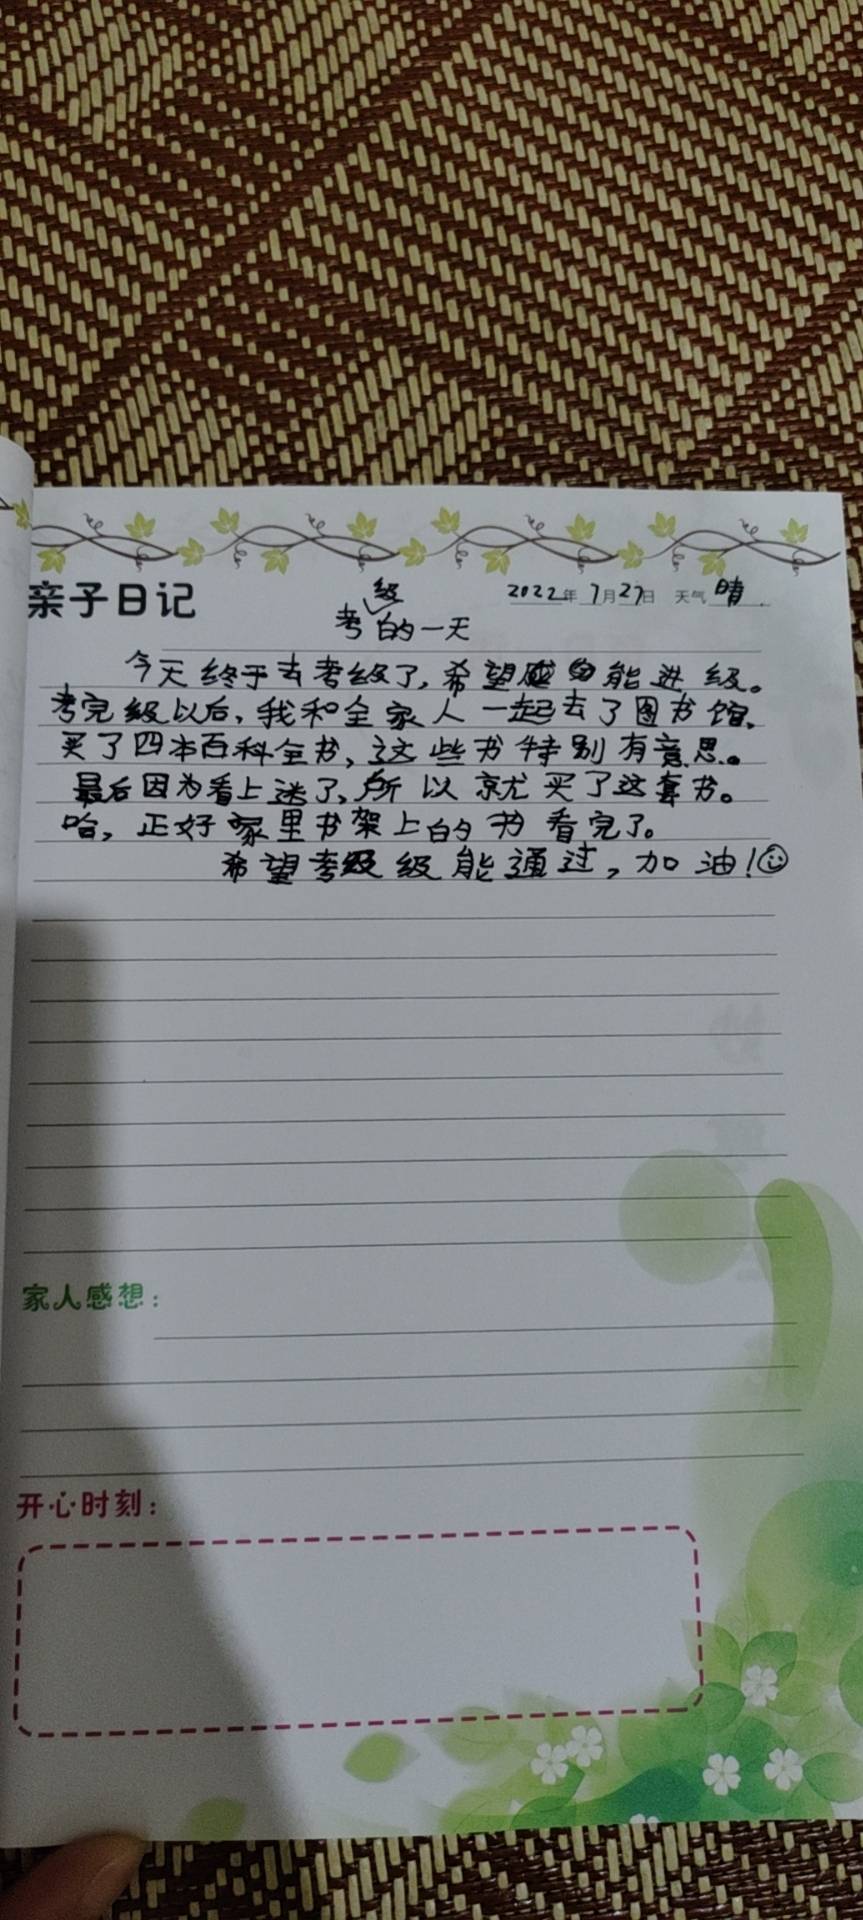 亲子日记 2022年7月27日 天气 晴
考级的一天
今天终于去考级了，希望能进级。
考完级以后，我和全家人一起去了图书馆，
买了四本百科全书，这些书特别有意思。
最后因为看上迷了，所以就买了这套书。
哈，正好家里书架上的书看完了。
希望考级能通过，加油！
家人感想：
开心时刻：